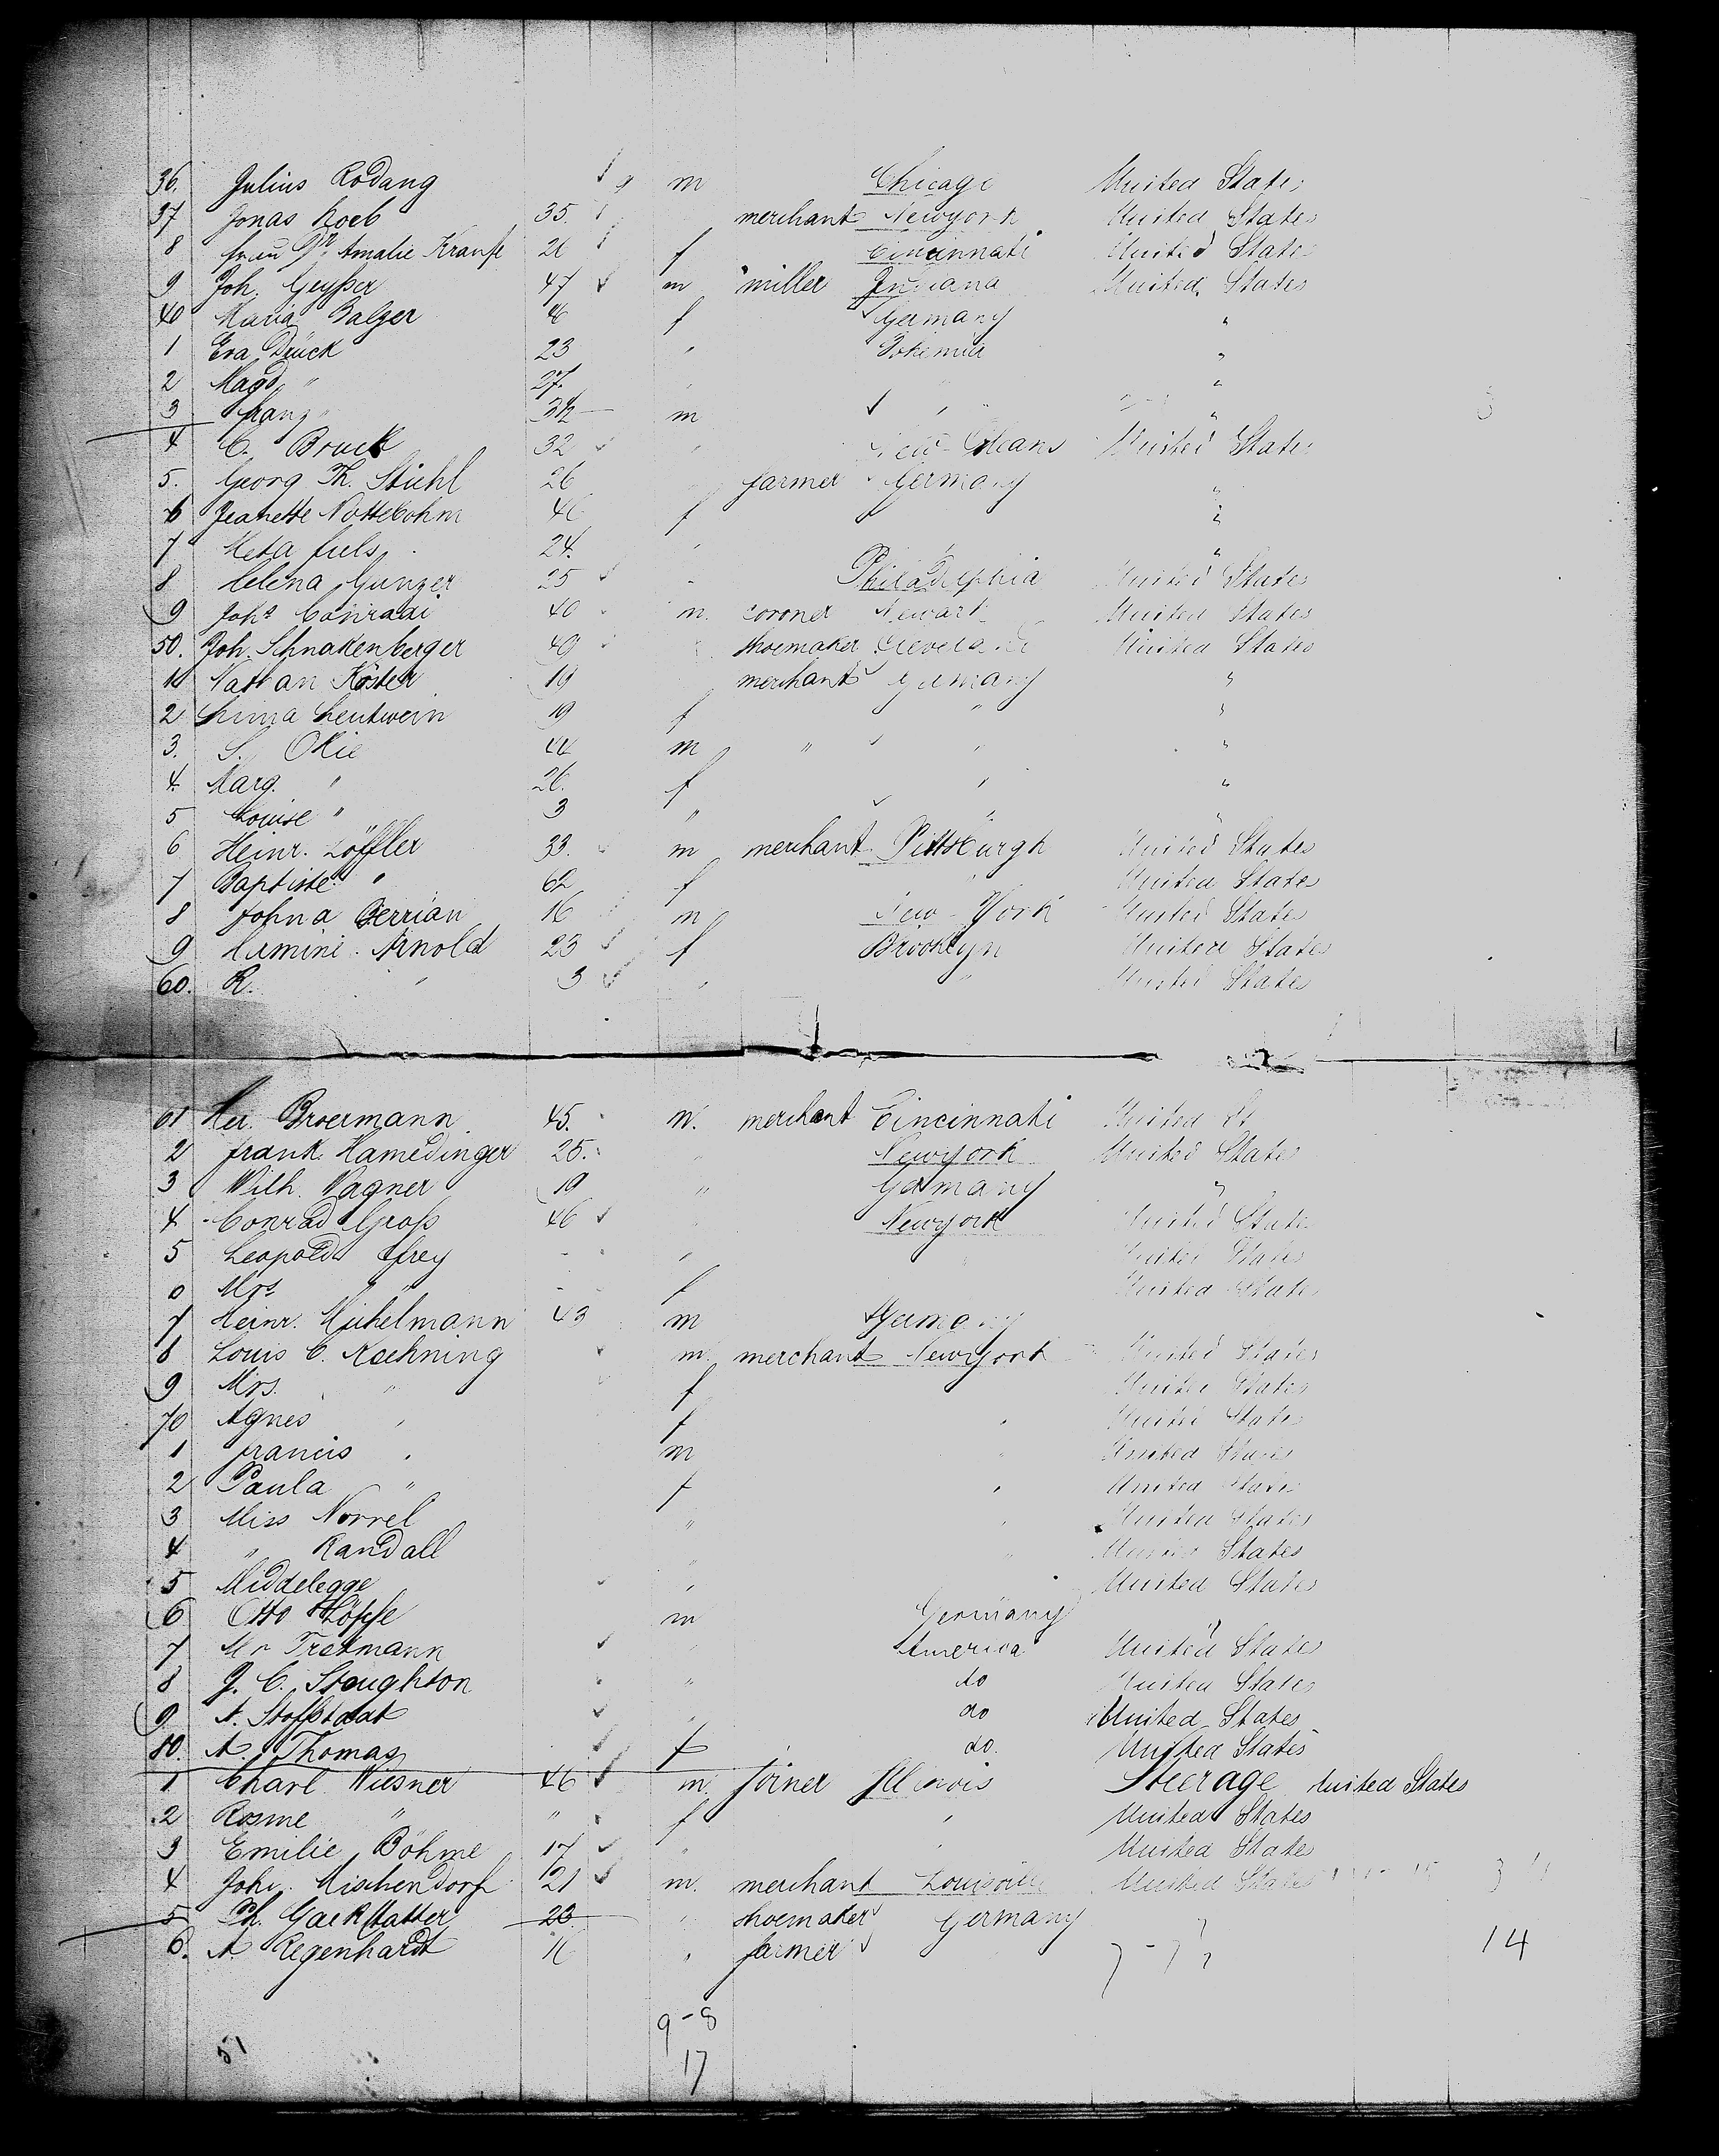 36. Julius Rodang m Chicago United States
37 Jonas Loeb 35. merchant Newyork United States
8 frau Dr. Amalie Krause 26 f Cincinnati United States
9 Joh. Geysser 47 m miller Indiana United States
40 Maria Balzer f Germany "
1 Eva Drück 23 " Bohemia "
2 Magd. " 27. " " "
3 franz " 32 m " "
4 C. Bruck 32 " New-Orleans United States
5. Georg Th. Stiehl 26 " farmer Germany "
6 Jeanette Nottebohm 46 f "
7 Meta fuls 24. " " "
8 Helena Gunzer 25 " Philadelphia United States
9 Johs Conradi 40 m. coroner Newark United States
50. Joh. Schnakenberger 49 " shoemaker Cleveland United States
11 Nathan Köster 19 merchant Germany "
2 Lina Leutwein 19 f " "
3. S. Okie 44 m " " "
4. Marg. " 26. f " "
5 Louise " 3 " " "
6 Heinr. Löffler 33. m merchant Pittsburgh United States
7 Baptiste " 62 f United States
8 John a Berrian 16 m New-York United States
9 Hermine Arnold 23 f Brooklyn United States
60. R. " 3 " " United States
61 Her. Broermann 45. m. merchant Cincinnati United St
2 frank Hamedinger 25. " Newyork United States
3 Wilh. Wagner 19 " Germany "
4 Conrad Gross 46 " Newyork United States
5 Leopold frey - " United States
6 Mrs " - f United States
7 Heinr. Michelmann 43 m Germany
8 Louis C. Koehning m. merchant Newyork United States
9 Mrs. " f United States
70 Agnes " f " United States
1 francis " m " United States
2 Paula " f " United States
3 Miss Norrel " " United States
4 " Randall " " United States
5 Middelegge " " United States
6 Otto Höpfe m Germany "
7 Mr Tratmann " America United States
8 J. C. Stoughton " do United States
9 A. Stoffstadt " do United States
80. A. Thomas f do. United States
1 Charl. Wiesner 46 m. joiner Illinois Steerage United States
2 Rosine " " f " United States
3 Emilie Böhme 17 " " United States
4 Joh. Mischendorf 21 m. merchant Louisville United States
5 Ph. Gaekstatter 23 " shoemaker Germany "
6. A. Regenhardt 16 " farmer " 14
9-8
17
51